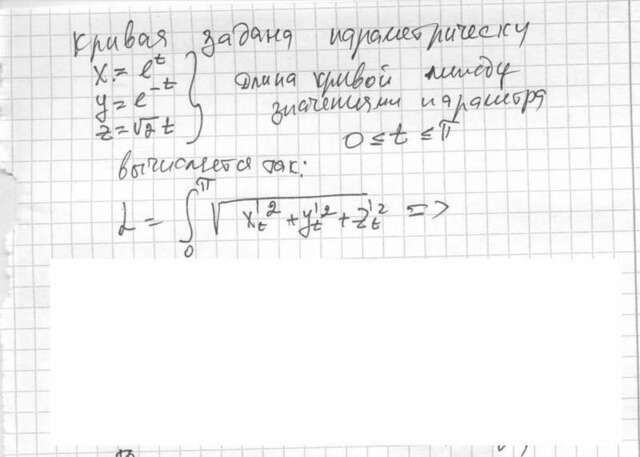 Кривая задана параметрическу
x = e^t
y = e^-t
z = √2 t
длина кривой между
значениями параметра
0 ≤ t ≤ π
вычисляется так:
L = ∫₀^π √(x'_t² + y'_t² + z'_t²) =>